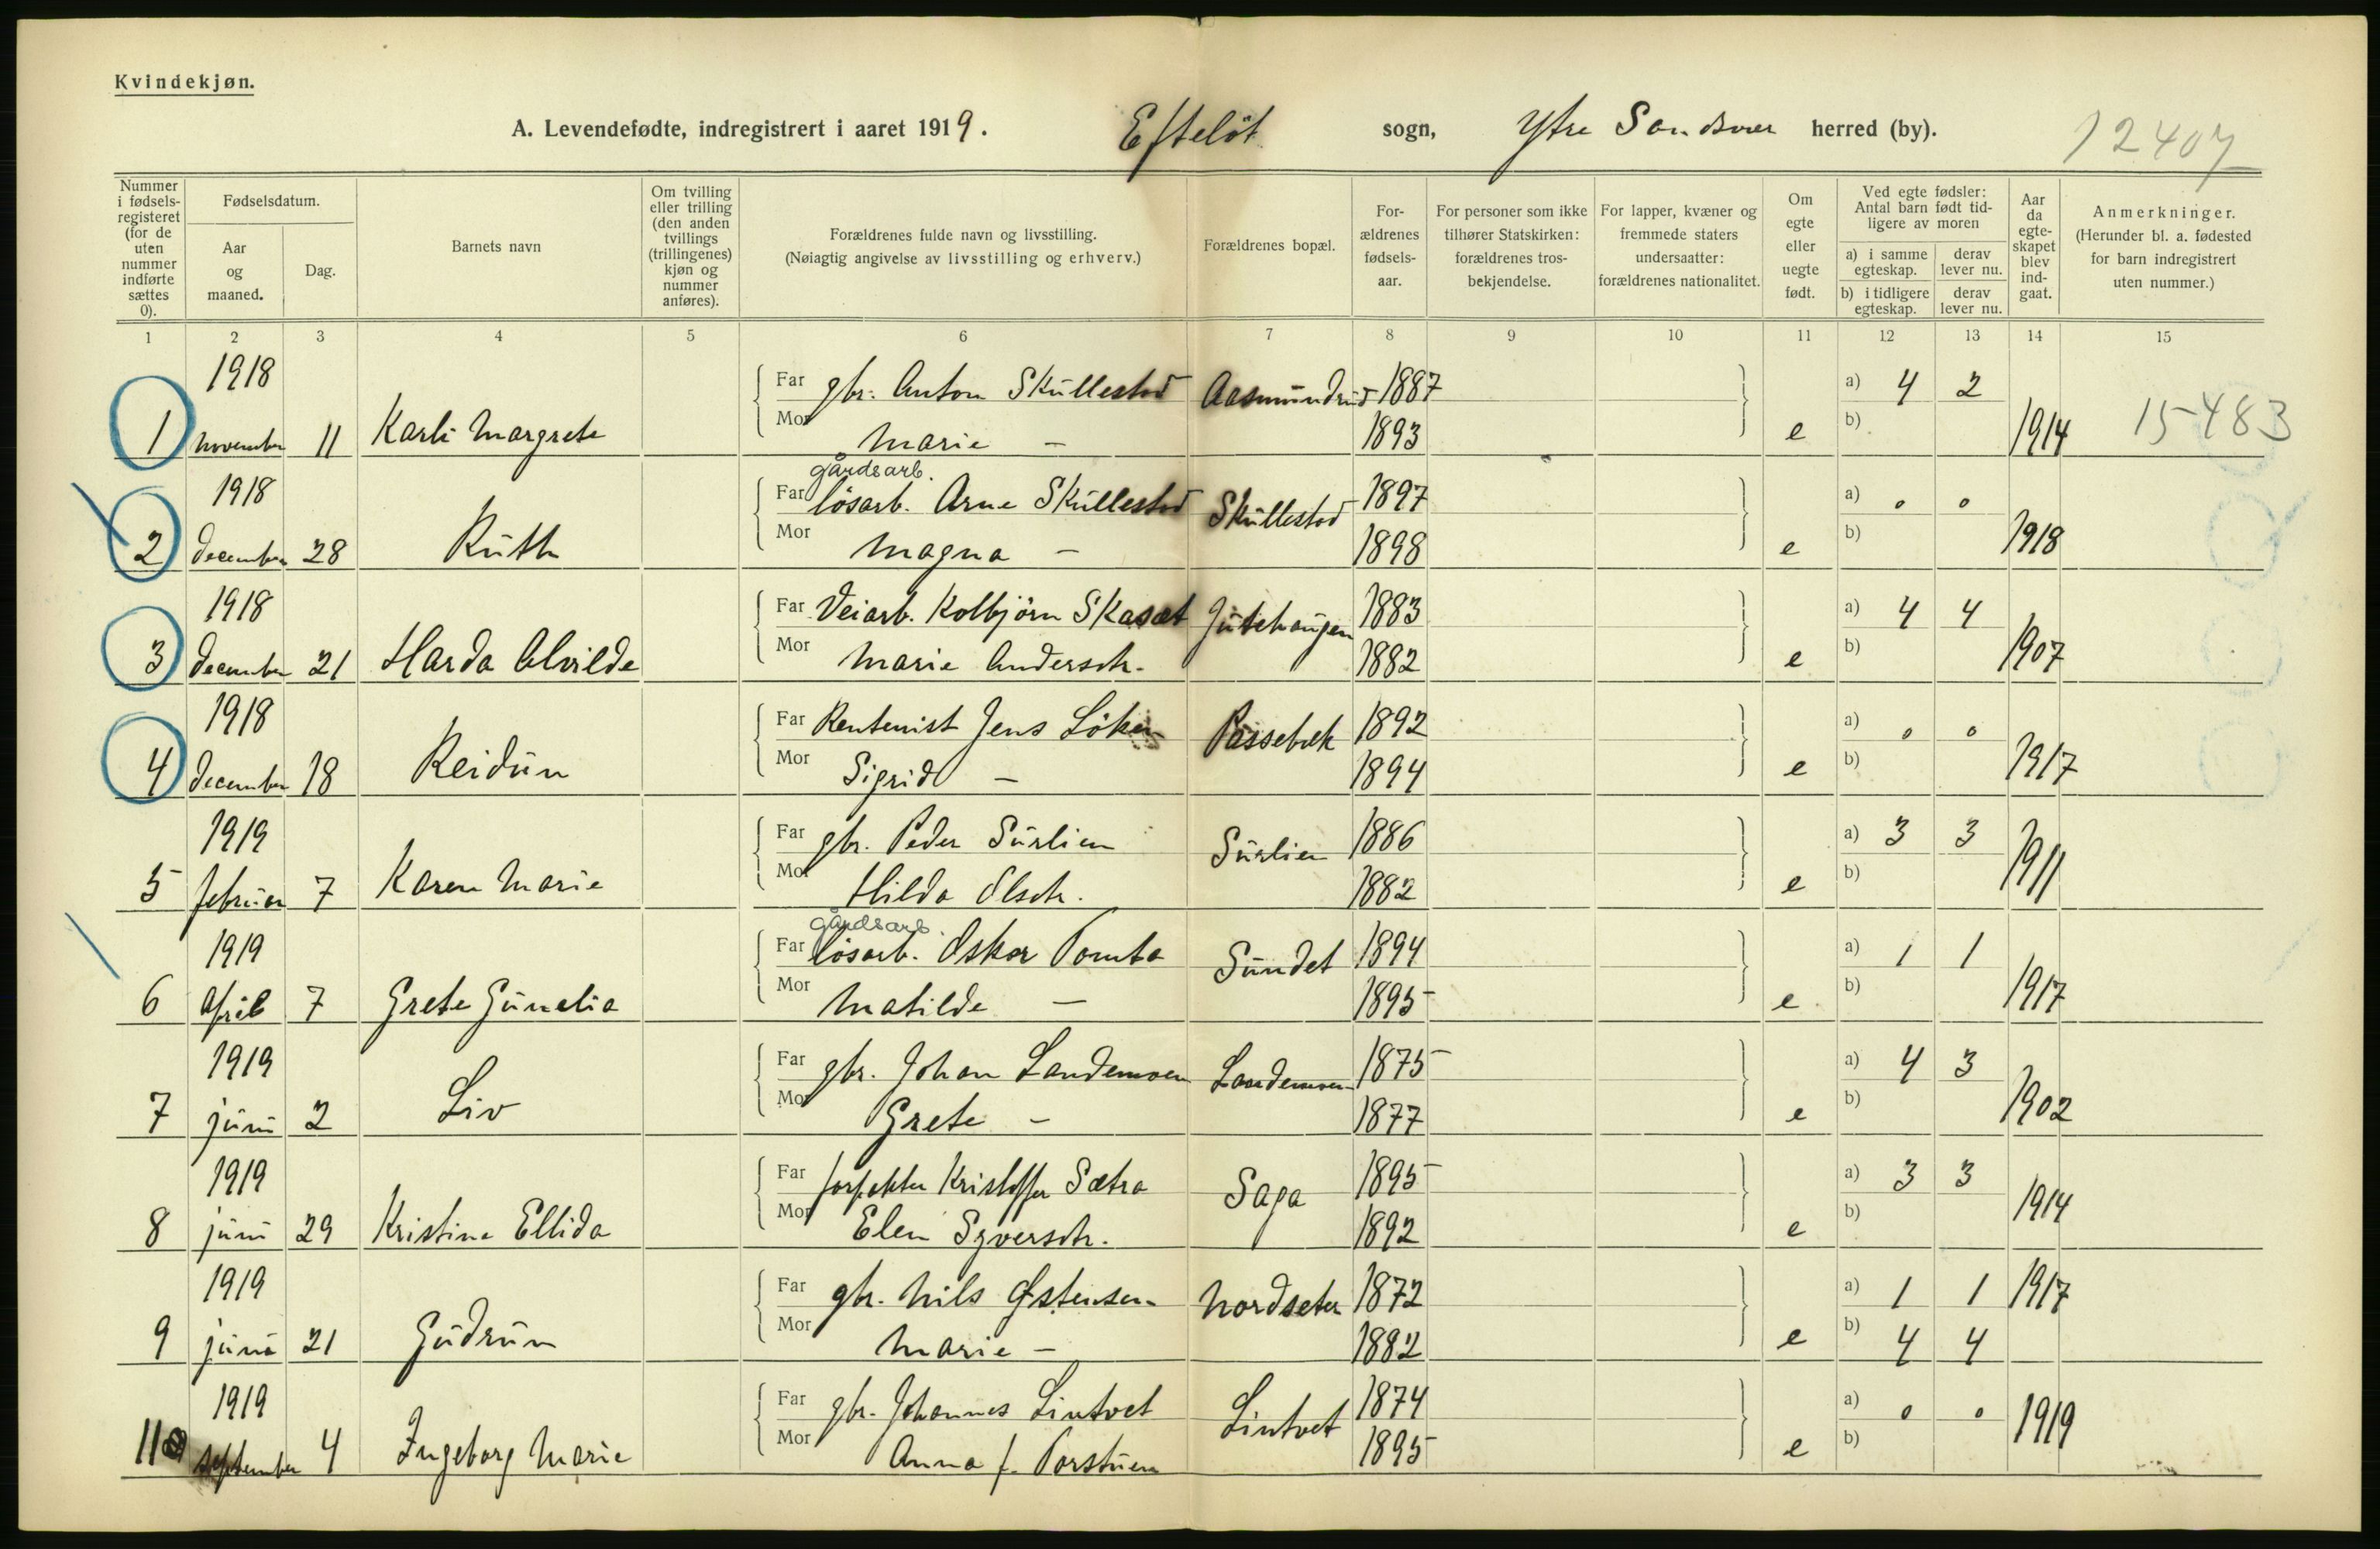 Kvindekjøn.
A. Levendefødte, indregistrert i aaret 1919. Efteløt sogn, Ytre Sandsvær herred (by).
12407
Nummer i fødsels-registeret (for de uten nummer indførte sættes 0).
Fødselsdatum.
Aar og maaned.
Dag.
Barnets navn
Om tvilling eller trilling (den anden tvillings (trillingenes) kjøn og nummer anføres).
Forældrenes fulde navn og livsstilling.
(Nøiagtig angivelse av livsstilling og erhverv.)
Forældrenes bopæl.
For-ældrenes fødsels-aar.
For personer som ikke tilhører Statskirken: forældrenes tros-bekjendelse.
For lapper, kvæner og fremmede staters undersaatter: forældrenes nationalitet.
Om egte eller uegte født.
Ved egte fødsler: Antal barn født tid-ligere av moren
a) i samme egteskap.
derav lever nu.
b) i tidligere egteskap.
derav lever nu.
Aar da egte-skapet blev ind-gaat.
Anmerkninger.
(Herunder bl. a. fødested for barn indregistrert uten nummer.)
1 2 3 4 5 6 7 8 9 10 11 12 13 14 15
1918 Far gbr. Anton Skullestad Aasmundrud 1887 a) 4 2
1 november 11 Karli Margrete Mor Marie — 1893 e b) 1914 15483
gårdsarb.
1918 Far løsarb. Arne Skullestad Skullestad 1897 a) 0 0
2 december 28 Ruth Mor Magna — 1898 e b) 1918
1918 Far Veiarb. Kolbjörn Skasæt 1883 a) 4 4
3 december 21 Harda Alvilde Mor Marie Andersdtr. 1882 e b) 1907
1918 Far Rentenist Jens Löken Passebæk 1892 a) 0 0
4 december 18 Reidun Mor Sigrid — 1894 e b) 1917
1919 Far gbr. Peder Surlien Surlien 1886 a) 3 3
5 februar 7 Karen Marie Mor Hilda Olsdtr. 1882 e b) 1911
gårdsarb.
1919 Far løsarb. Oskar Tomta Sundet 1894 a) 1 1
6 April 7 Grete Gunelia Mor Matilde — 1895 e b) 1917
1919 Far gbr. Johan Landemoen Landemoen 1875 a) 4 3
7 juni 2 Liv Mor Grete — 1877 e b) 1902
1919 Far forpakter Kristoffer Sætra Saga 1895 a) 3 3
8 juni 29 Kristine Ellida Mor Elen Syversdtr. 1892 e b) 1914
1919 Far gbr. Nils Østensen Nordseter 1872 a) 1 1 1917
9 juni 21 Gudrun Mor Marie — 1882 e b) 4 4
1919 Far gbr. Johannes Lintvet Lintvet 1874 a) 0 0 1919
11 september 4 Ingeborg Marie Mor Anna f. Torstuen 1895 e b)